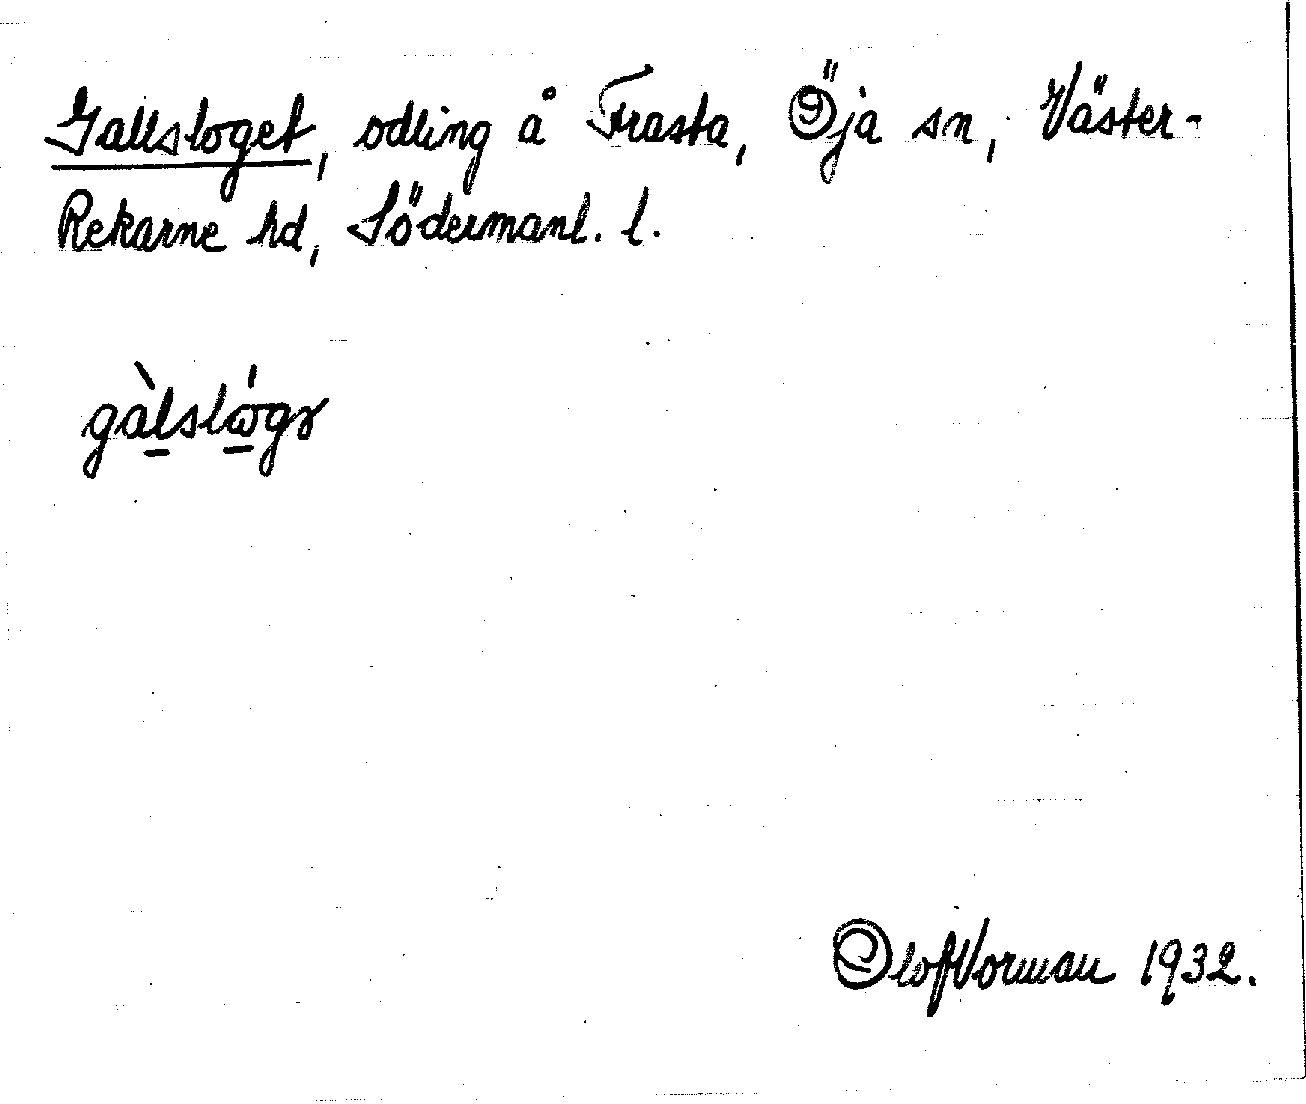 Gallsloget, odling å Frasta, Öja sn, Väster-
Rekarne hd, Södermanl. l.
gàlslógɤ
Olof Vorman 1932.